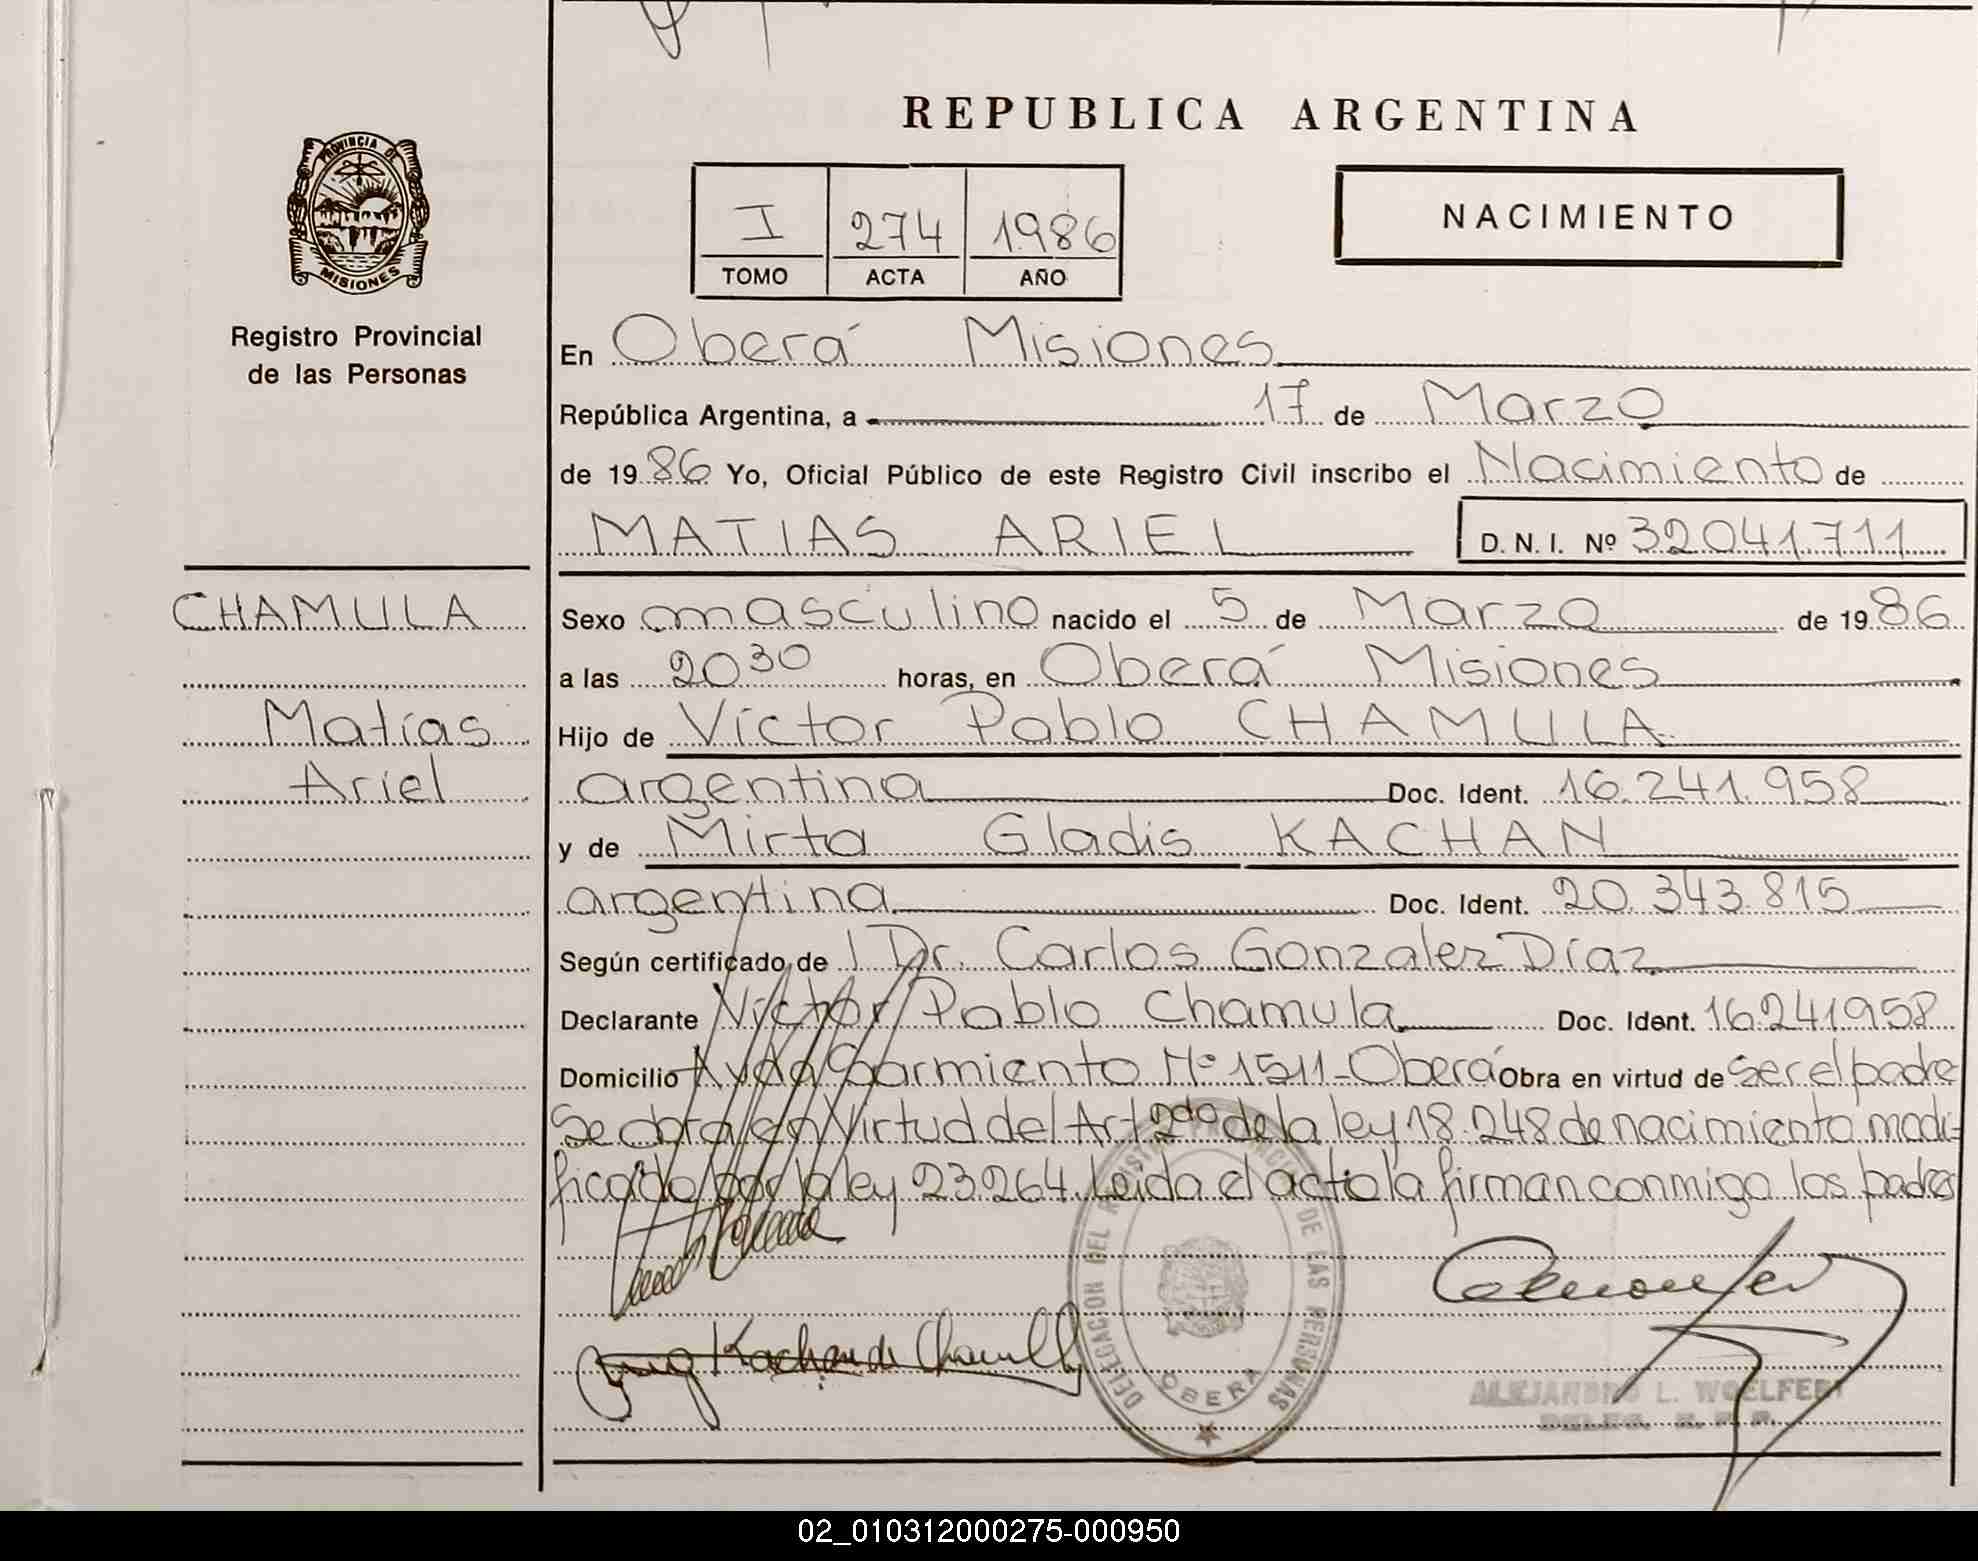 REPUBLICA ARGENTINA
PROVINCIA DE
MISIONES
Registro Provincial
de las Personas
I 274 1986
TOMO ACTA AÑO
NACIMIENTO
En Oberá Misiones
República Argentina, a 17 de Marzo
de 19 86 Yo, Oficial Público de este Registro Civil inscribo el Nacimiento de
MATIAS ARIEL D. N. I. Nº 32041711
CHAMULA
Matías
Ariel
Sexo masculino nacido el 5 de Marzo de 19 86
a las 20 30 horas, en Oberá Misiones
Hijo de Víctor Pablo CHAMULA
argentina Doc. Ident. 16.241.958
y de Mirta Gladis KACHAN
argentina Doc. Ident. 20.343.815
Según certificado de Dr. Carlos Gonzalez Díaz
Declarante Víctor Pablo Chamula Doc. Ident. 16241958
Domicilio Avda Sarmiento Nº 1511-Oberá Obra en virtud de ser el padre
Se obra en Virtud del Art 2do de la ley 18.248 de nacimiento modi-
ficado por la ley 23264. Leida el acta la firman conmigo los padres
Kachan de
DELEGACION DEL REGISTRO PROVINCIAL DE LAS PERSONAS
OBERA
ALEJANDRO L. WOELFERT
DELEG. R. P. P.
02_010312000275-000950